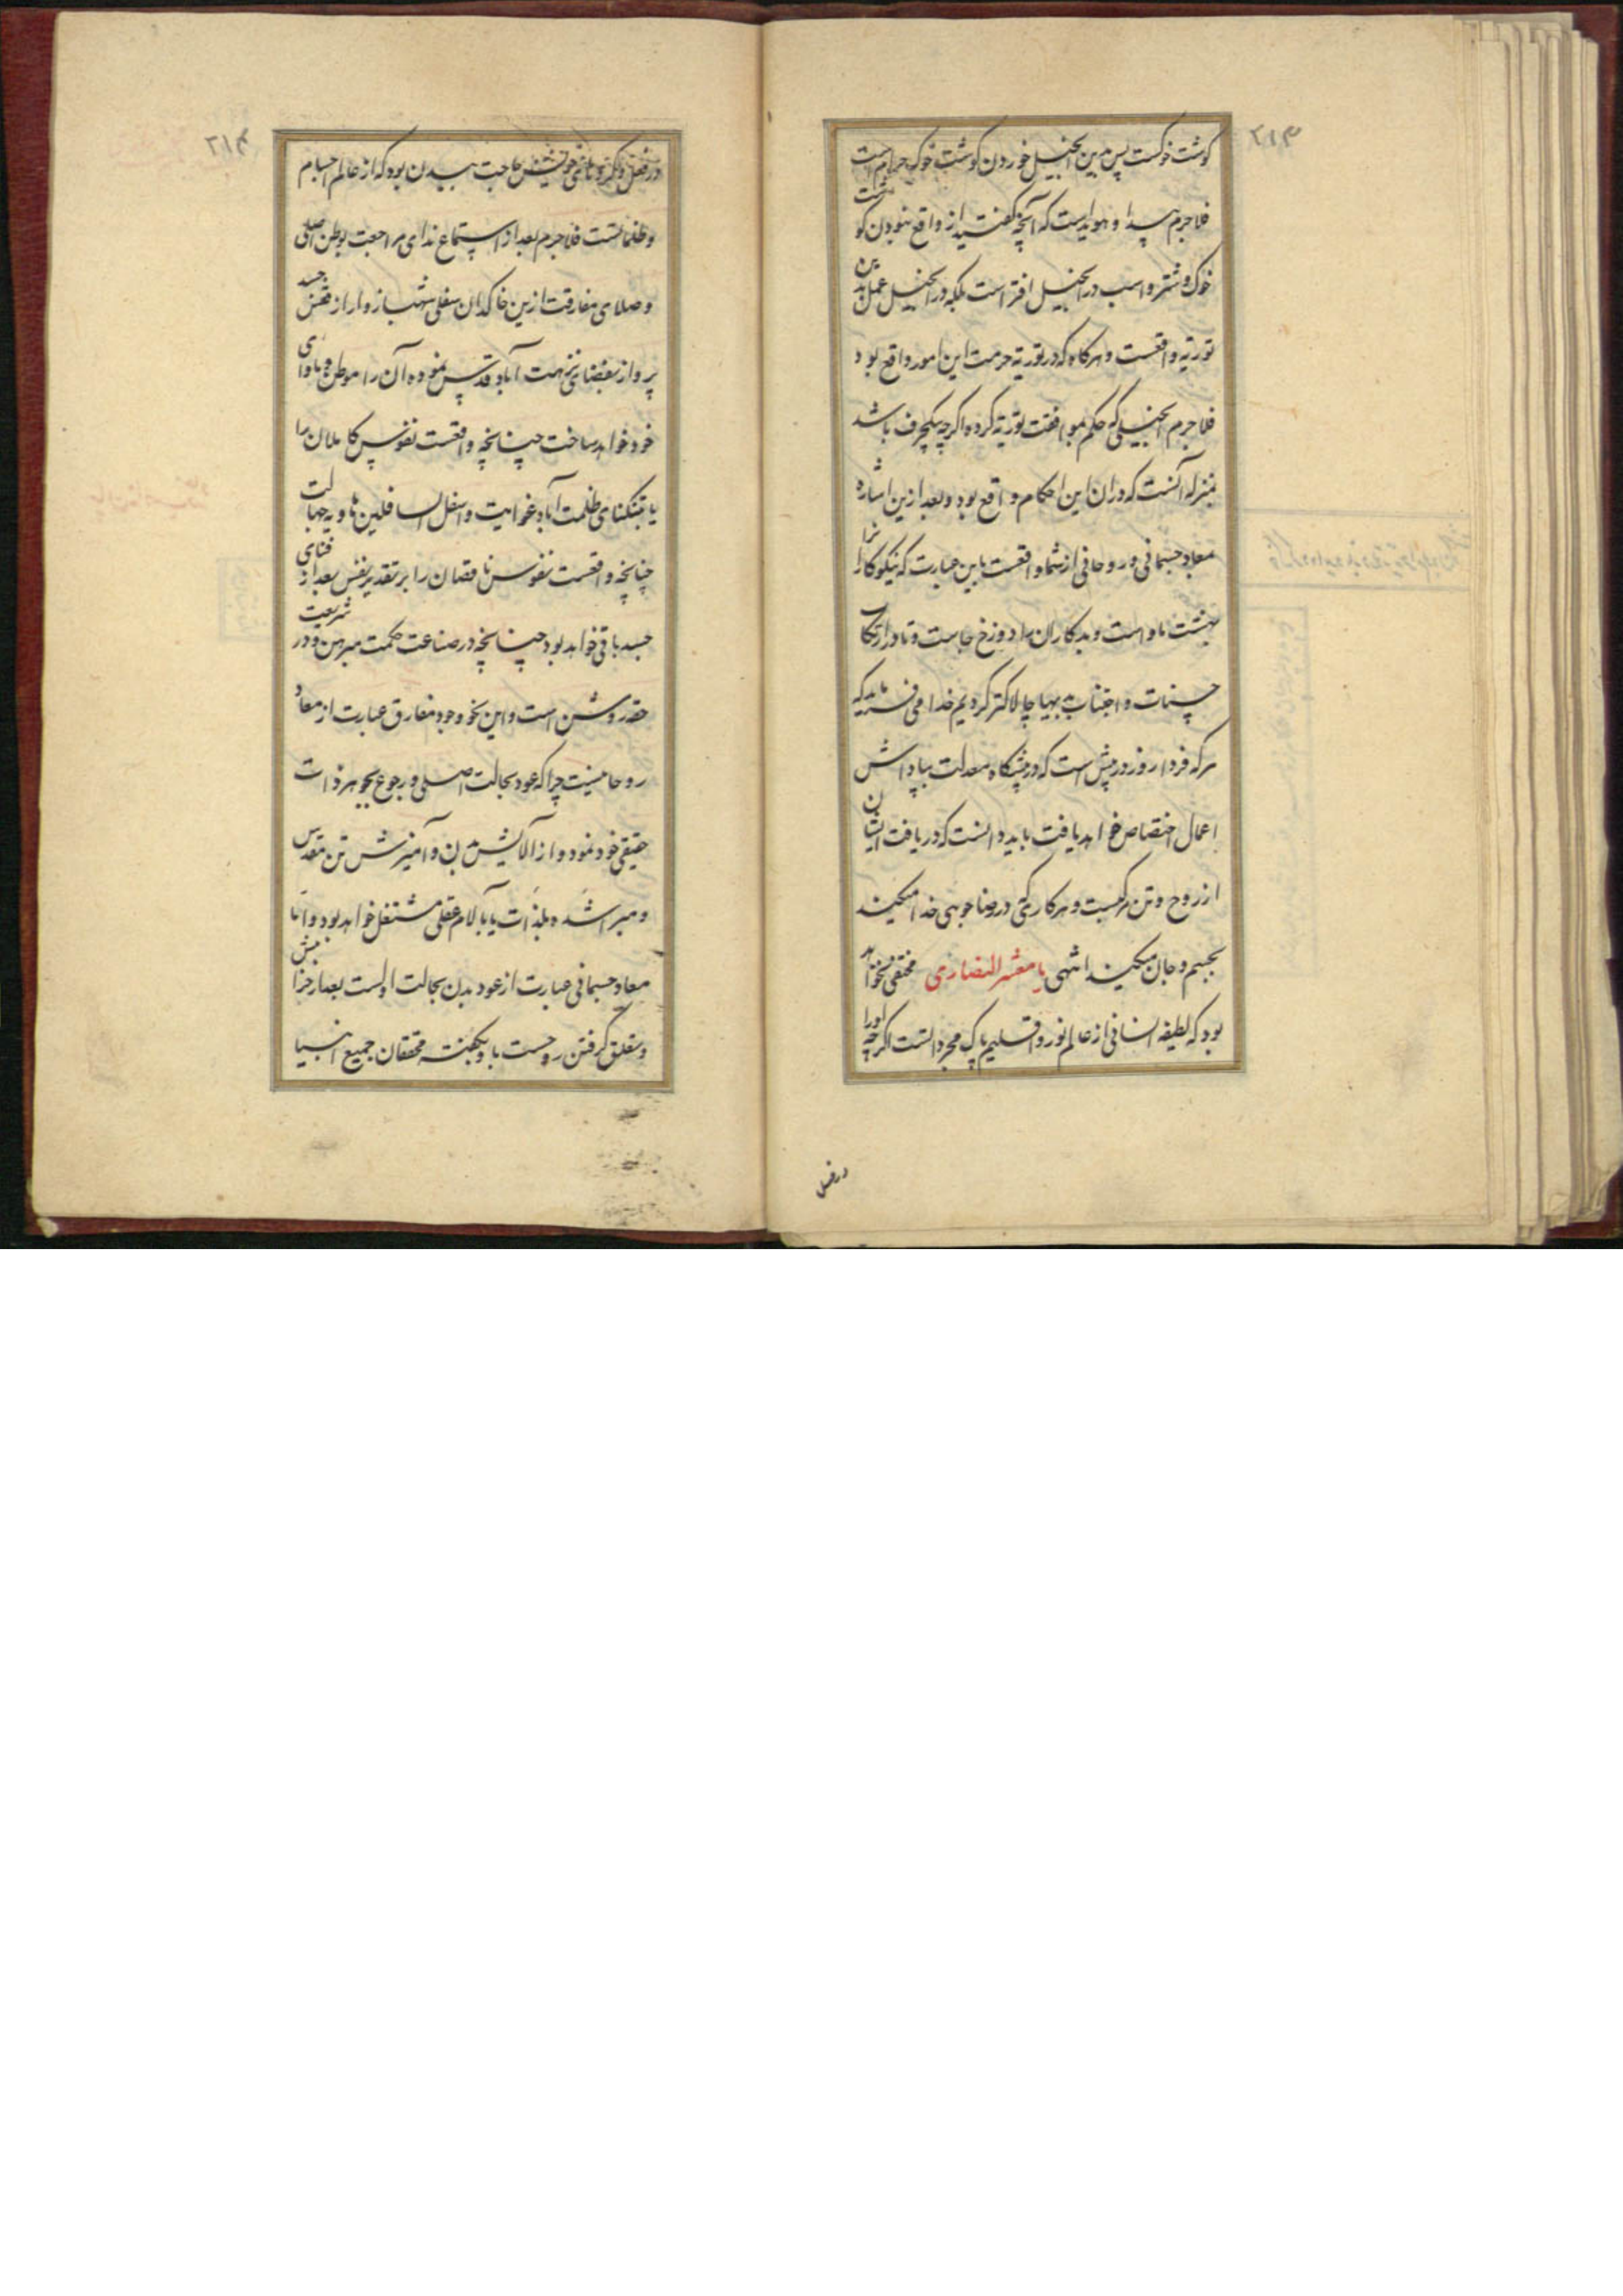 ۲۱۳
گوشت خوکست پس مبین انجیل خوردن گوشت خوک حرام است
فلاجرم پیدا و هویداست که آنچه گفتید از واقع نبودن گوشت
خوک و شتر و اسب در انجیل افتراست بلکه در انجیل عمل بدین
توریة واقعست و هرگاه که در توریة حرمت این امور واقع بود
فلاجرم انجیلی که حکم بموافقت توریة کرده اگرچه یکحرف باشد
بمنزله آنست که در ان این احکام واقع بود و بعد ازین اشاره
معاد جسمانی و روحانی از شما واقعست باین عبارت که نیکوکارانرا
بهشت ماواست و بدکاران را دوزخ جاست و تا در ارتکاب
حسنات و اجتناب بدیها چالاکتر گردیم خدا می فرماید که
هرکه فردا روزی در پیش است که در پیشگاه معدلت بپاداش
اعمال اختصاص خواهد یافت باید دانست که در یافت ایشان
از روح و تن مرکبست و هر کاری که در رضا جویی خدا میکنند
بجسم و جان میکنند انتهی یا معشر النصاری مختفی نخواهد
بود که لطیفه انسانی از عالم نور و اقلیم پاک مجردانست اگرچه اورا
در فعل
۲۱۴
در فعل و کمال ثانی خویش حاجت ببدن بود که از عالم اجسام
و ظلمانست فلاجرم بعد از استماع ندای مراجعت بوطن اصلی
و صلای مفارقت ازین خاکدان سفلی شهباز وار از قفس جسد
پرواز بفضای نزهت آباد قدس نموده آن را موطن و ماوای
خود خواهد ساخت چنانچه واقعست نفوس کاملان را
یا بتنکنای ظلمت آباد غوایت و اسفل السافلین هاویه جهالت
چنانچه واقعست نفوس ناقصان را بر تقدیر نفس بعد از فنای
جسد باقی خواهد بود چنانچه در صناعت حکمت مبرهن و در شریعت
حقه روشن است و این نحو وجود مفارق عبارت از معاد
روحانیست چراکه عود بحالت اصلی و رجوع بجوهر ذات
حقیقی خود نموده و از آلایش بدن و آمیزش تن مقدس
و مبرا شده بلذات یا بالام عقلی مشتغل خواهد بود و اما
معاد جسمانی عبارت از عود بدن بحالت اولست بعد از خرابیش
و تعلق گرفتن روحست باو بگفته محققان جمیع انبیا